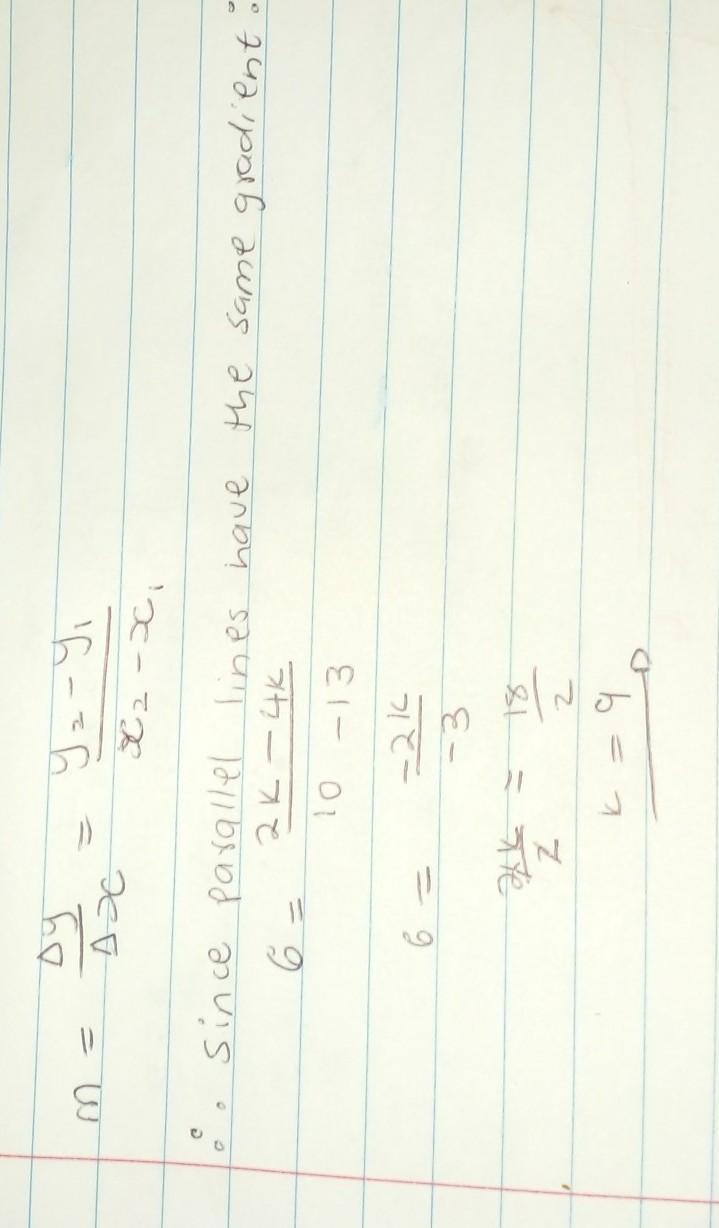 m = Δy/Δx = y₂ - y₁/x₂ - x₁
∴ Since parallel lines have the same gradient :
6 = 2k - 4k/10 - 13
6 = -2k/-3
2k/2 = 18/2
k = 9